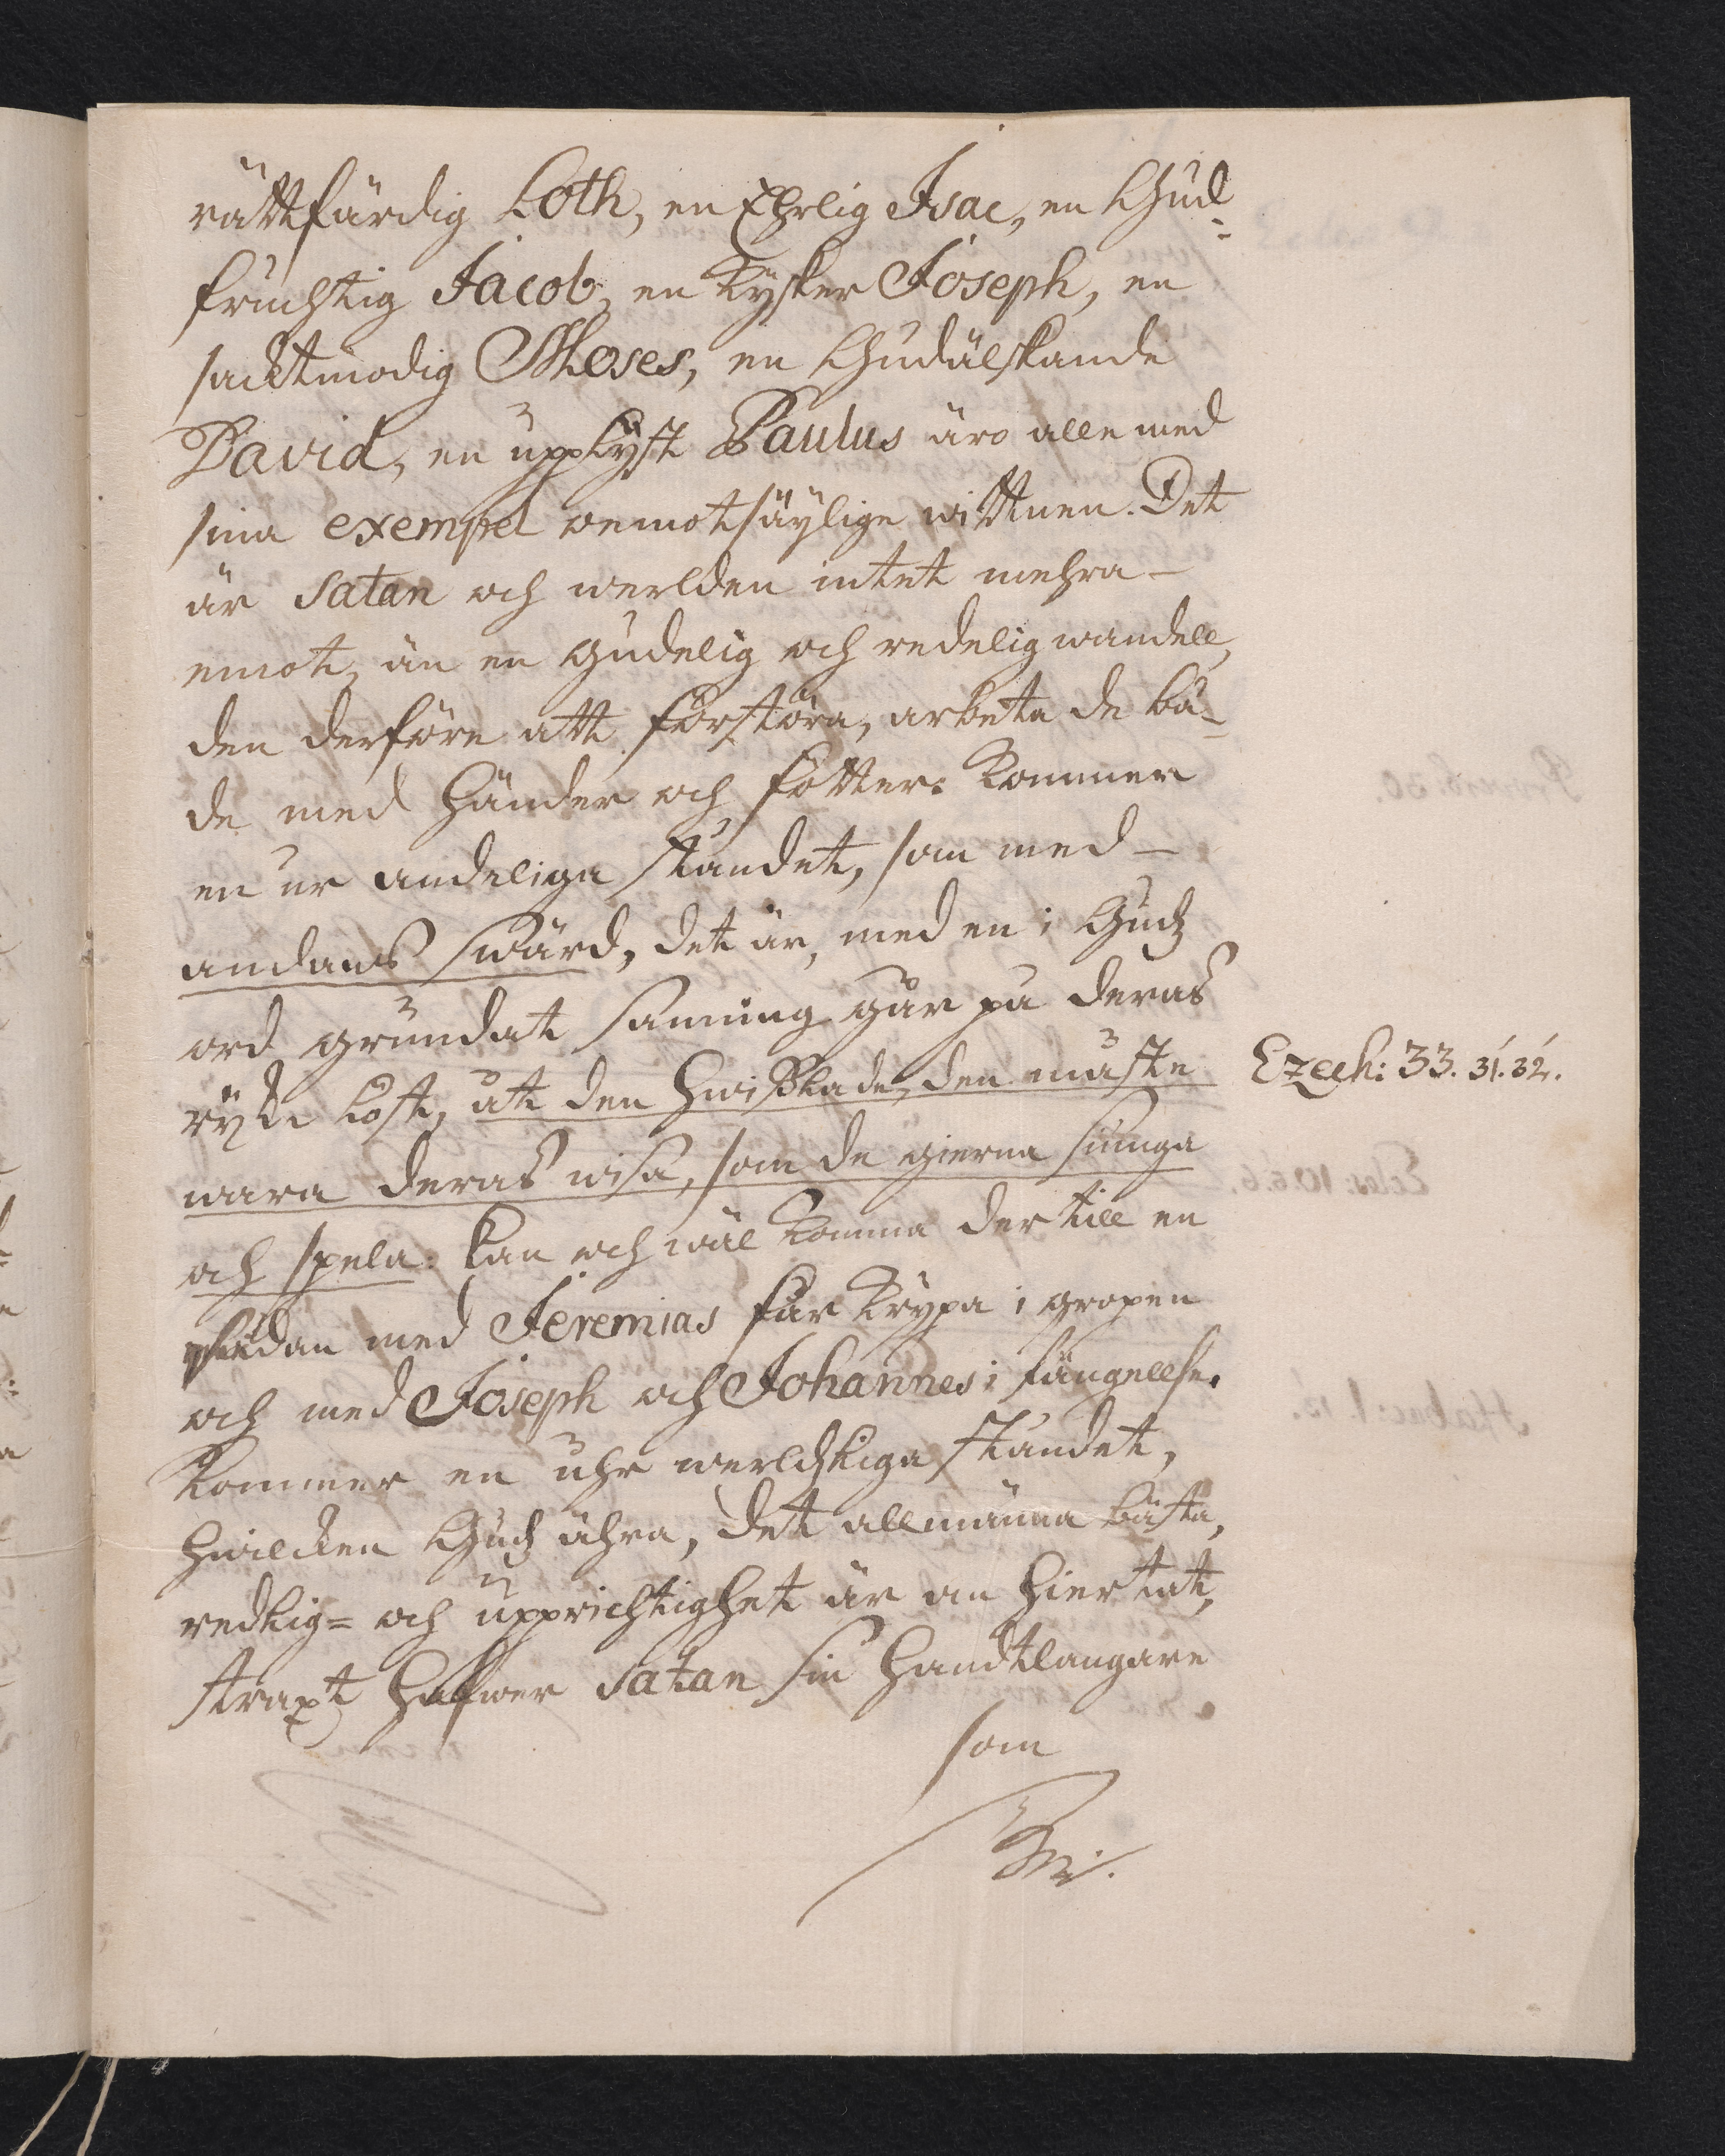 rättfärdig Loth, en Ehrlig Isac, en Gud-
fruchtig Jacob, en kysker Joseph, en
sachtmodig Moses, en Gudälskande
David, en upplyst Paulus äro alle med
sina exempel oemotsäÿlige wittnen. Det
är Satan och werlden intet mehra
emot, än en gudelig och redelig wandell,
den derföre att förstöra, arbeta de bå-
de med händer och fötter. Kommer
en ur andeliga ståndet, som med
andans swärd, det är, med en i Gudz
ord grundat sanning går på deras
löst, at den hwißlade, den måste
wara deras wisa, som de gierna siunga
och spela: kan och wäl komma der till en
sådan med Jeremias får krypa i gropen
och med Joseph och Johannes i fängellse.
Kommer en uhr werldzliga ståndet,
hwilcken Gudz ähra, det allmänna bästa,
redlig= och upprichtighet är om hiertat,
straxt hafwer Satan sin handtlangare
som
Ezech: 33. 31. 32.